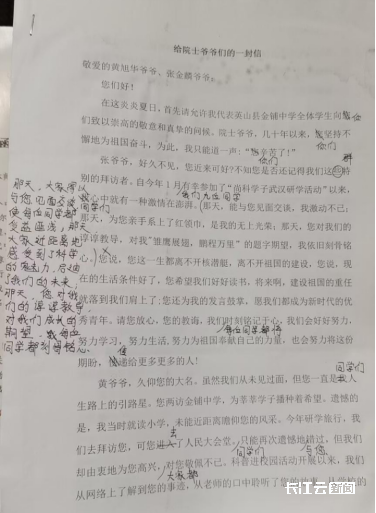 给院士爷爷们的一封信
敬爱的黄旭华爷爷、张金麟爷爷：
您们好！
在这炎炎夏日，首先请允许我代表英山县金铺中学全体学生向你
们致以崇高的敬意和真挚的问候。院士爷爷，几十年来，您坚持不
你们
懈地为祖国奋斗，为此，我只能道一声：“您辛苦了！”
你们
张爷爷，好久不见，您近来可好?不知您是否还记得我们这
群
别的拜访者，自今年1月有幸参加了“尚科学子武汉研学活动”以来，
我们九位同学
心中就有一种激情在澎湃。那天，能与您见面交谈，我激动不已；
那天，为您亲手系上了红领巾，是我的无上光荣；那天，您对我们的
谆谆教导，对我“雏鹰展翅，鹏程万里”的题字期望，我依旧刻骨铭
心。您说，您这一生都离不开核潜艇，离不开祖国的建设，您说，现
在的生活条件好了，您希望我们好好读书，将来啊，建设祖国的重任
就落到我们肩上了；您还为我的发言鼓掌，愿我们都成为新时代的优
秀青年。请您放心，您的教诲，我们时刻铭记于心，我们会好好努力，
每位同学都将
努力学习，努力生活，努力为祖国奉献自己的力量，也会努力将这份
期盼，传递给更多更多的人！
同学们
黄爷爷，久仰您的大名，虽然我们从未见过面，但您一直是我人
生路上的引路星，您两访金铺中学，为莘莘学子播种着希望。遗憾的
是，我当时就读小学，未能近距离瞻仰您的风采。今年研学旅行，我
去
们去拜访您，可您进入了人民大会堂，只能再次遗憾地错过，但我们
同学们
与您
却由衷地为您高兴，对您敬佩不已。科普进校园活动开展以来，我们
大家都
从网络上了解到您的事迹，从老师的口中聆听了您的故事，
那天，大家得以
与您见面交谈，
使每位同学都
大家近距离地
感受到了科学
了我们的未来，
那天，您对我
们的谆谆教导，
对我们成长的
期望，我每位
同学都刻骨铭心
长江云新闻